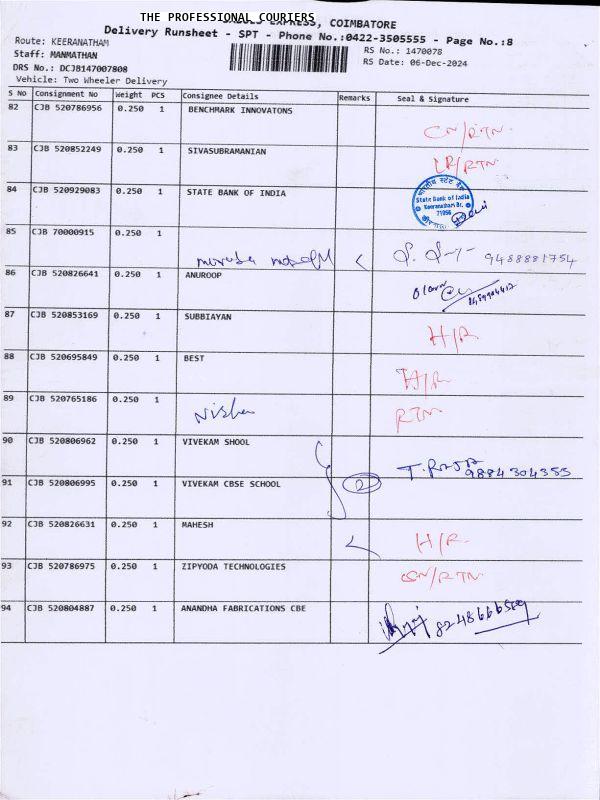 THE PROFESSIONAL COURIERS
EXPRESS, COIMBATORE
Delivery Runsheet - SPT - Phone No.:0422-3505555 - Page No.:8
Route: KEERANATHAM
RS No.: 1470078
Staff: MANMATHAN
RS Date: 06-Dec-2024
DRS No.: DCJB147007808
Vehicle: Two Wheeler Delivery
S No Consignment No Weight PCS Consignee Details Remarks Seal & Signature
82 CJB 520786956 0.250 1 BENCHMARK INNOVATONS CN/RTN
83 CJB 520852249 0.250 1 SIVASUBRAMANIAN LR/RTN
84 CJB 520929083 0.250 1 STATE BANK OF INDIA
भारतीय स्टेट बैंक
State Bank of India
Keeranatham Br.
71956
85 CJB 70000915 0.250 1 9488881754
86 CJB 520826641 0.250 1 ANUROOP
87 CJB 520853169 0.250 1 SUBBIAYAN H/R
88 CJB 520695849 0.250 1 BEST H/R
89 CJB 520765186 0.250 1 Nisha RTN
90 CJB 520806962 0.250 1 VIVEKAM SHOOL T.RAJA
9884304353
91 CJB 520806995 0.250 1 VIVEKAM CBSE SCHOOL 2
92 CJB 520826631 0.250 1 MAHESH H/R
93 CJB 520786975 0.250 1 ZIPYODA TECHNOLOGIES CN/RTN
94 CJB 520804887 0.250 1 ANANDHA FABRICATIONS CBE